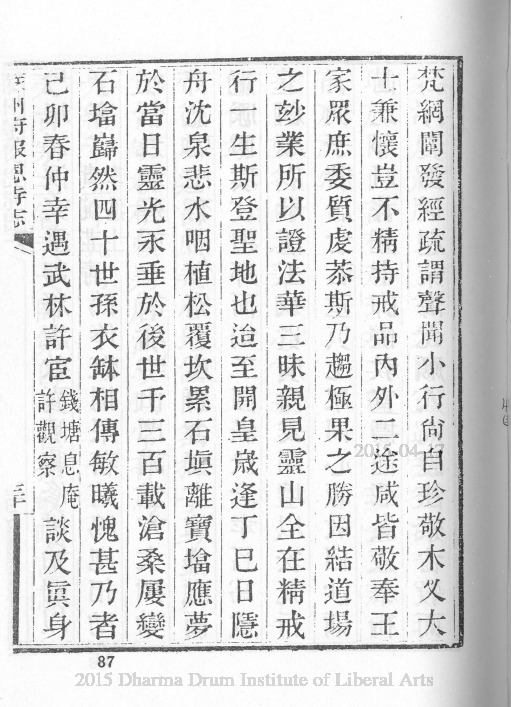 梵網闡發經疏謂聲聞小行尙自珍敬木叉大
士兼懷豈不精持戒品內外二途咸皆敬奉王
家眾庶委質虔恭斯乃趨極果之勝因結道場
之妙業所以證法華三昧親見靈山全在精戒
行一生斯登聖地也迨至開皇歲逢丁巳日隱
舟沈泉悲水咽植松覆坎累石塡離寶墖應夢
於當日靈光永垂於後世千三百載滄桑屢變
石墖巋然四十世孫衣缽相傳敏曦愧甚乃者
己卯春仲幸遇武林許宦錢塘息庵許觀察談及眞身
州府報恩寺志
三十
87
2015-04-17
2015 Dharma Drum Institute of Liberal Arts